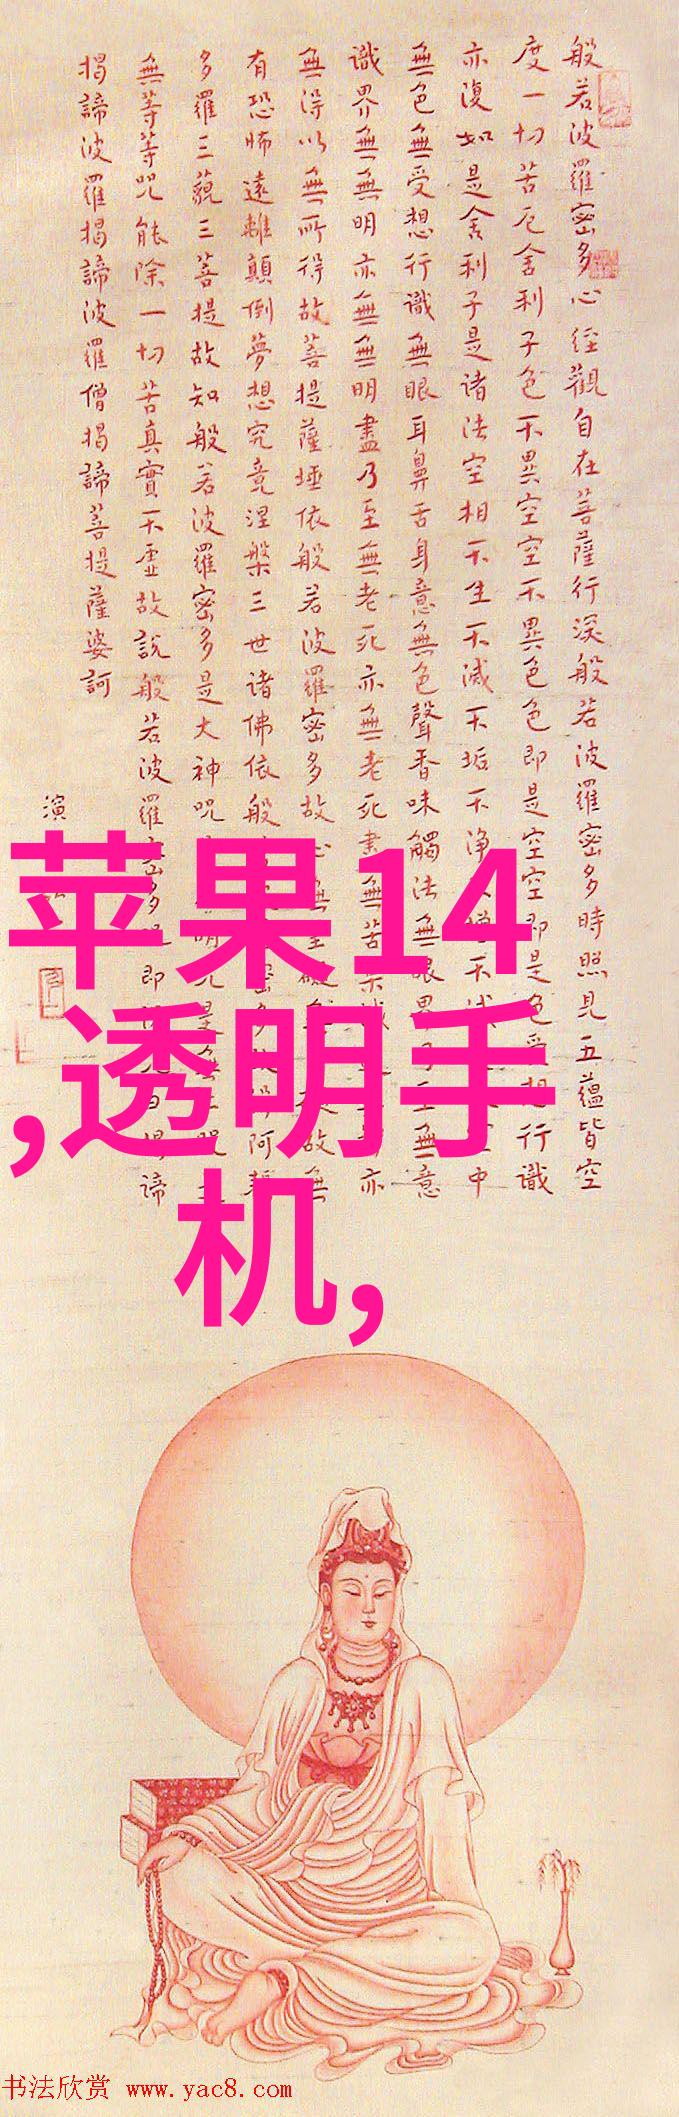 般若波羅密多心经觀自在菩薩行深般若波羅密多時照見五蘊皆空
度一切苦厄舍利子色不異空空不異色色即是空空即是色受想行識
亦復如是舍利子是诸法空相不生不滅不垢不浄增不中
無色無受想行識無眼耳鼻舌身意無色聲香味觸法無眼界乃至無意
識界無無明亦無無明盡乃至無老死亦無老死盡無苦亦
無得以無所得故菩提薩埵依般若波羅密多故心無礙故無
有恐怖遠離顛倒夢想究竟涅槃三世诸佛依般密多阿耨
多羅三藐三菩提故知般若波羅密多是大神咒明咒是無上咒
無等等咒能除一切苦真實不虚故説般若波羅密多即曰揭諦
揭諦波羅揭諦波羅僧揭諦菩提薩婆訶
演
苹果14
,透明手
机,
书法欣赏 www.yac8.com